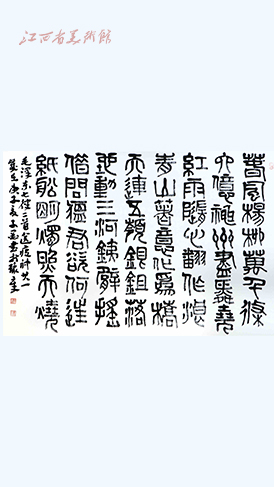 江西省美術館
春風楊柳萬千條
六億神州盡舜堯
紅雨隨心翻作浪
青山著意化爲橋
天連五嶺銀鉏落
地動三河銕臂搖
借問瘟君欲何往
紙船明燭照天燒
毛澤東七律二首送瘟神其二